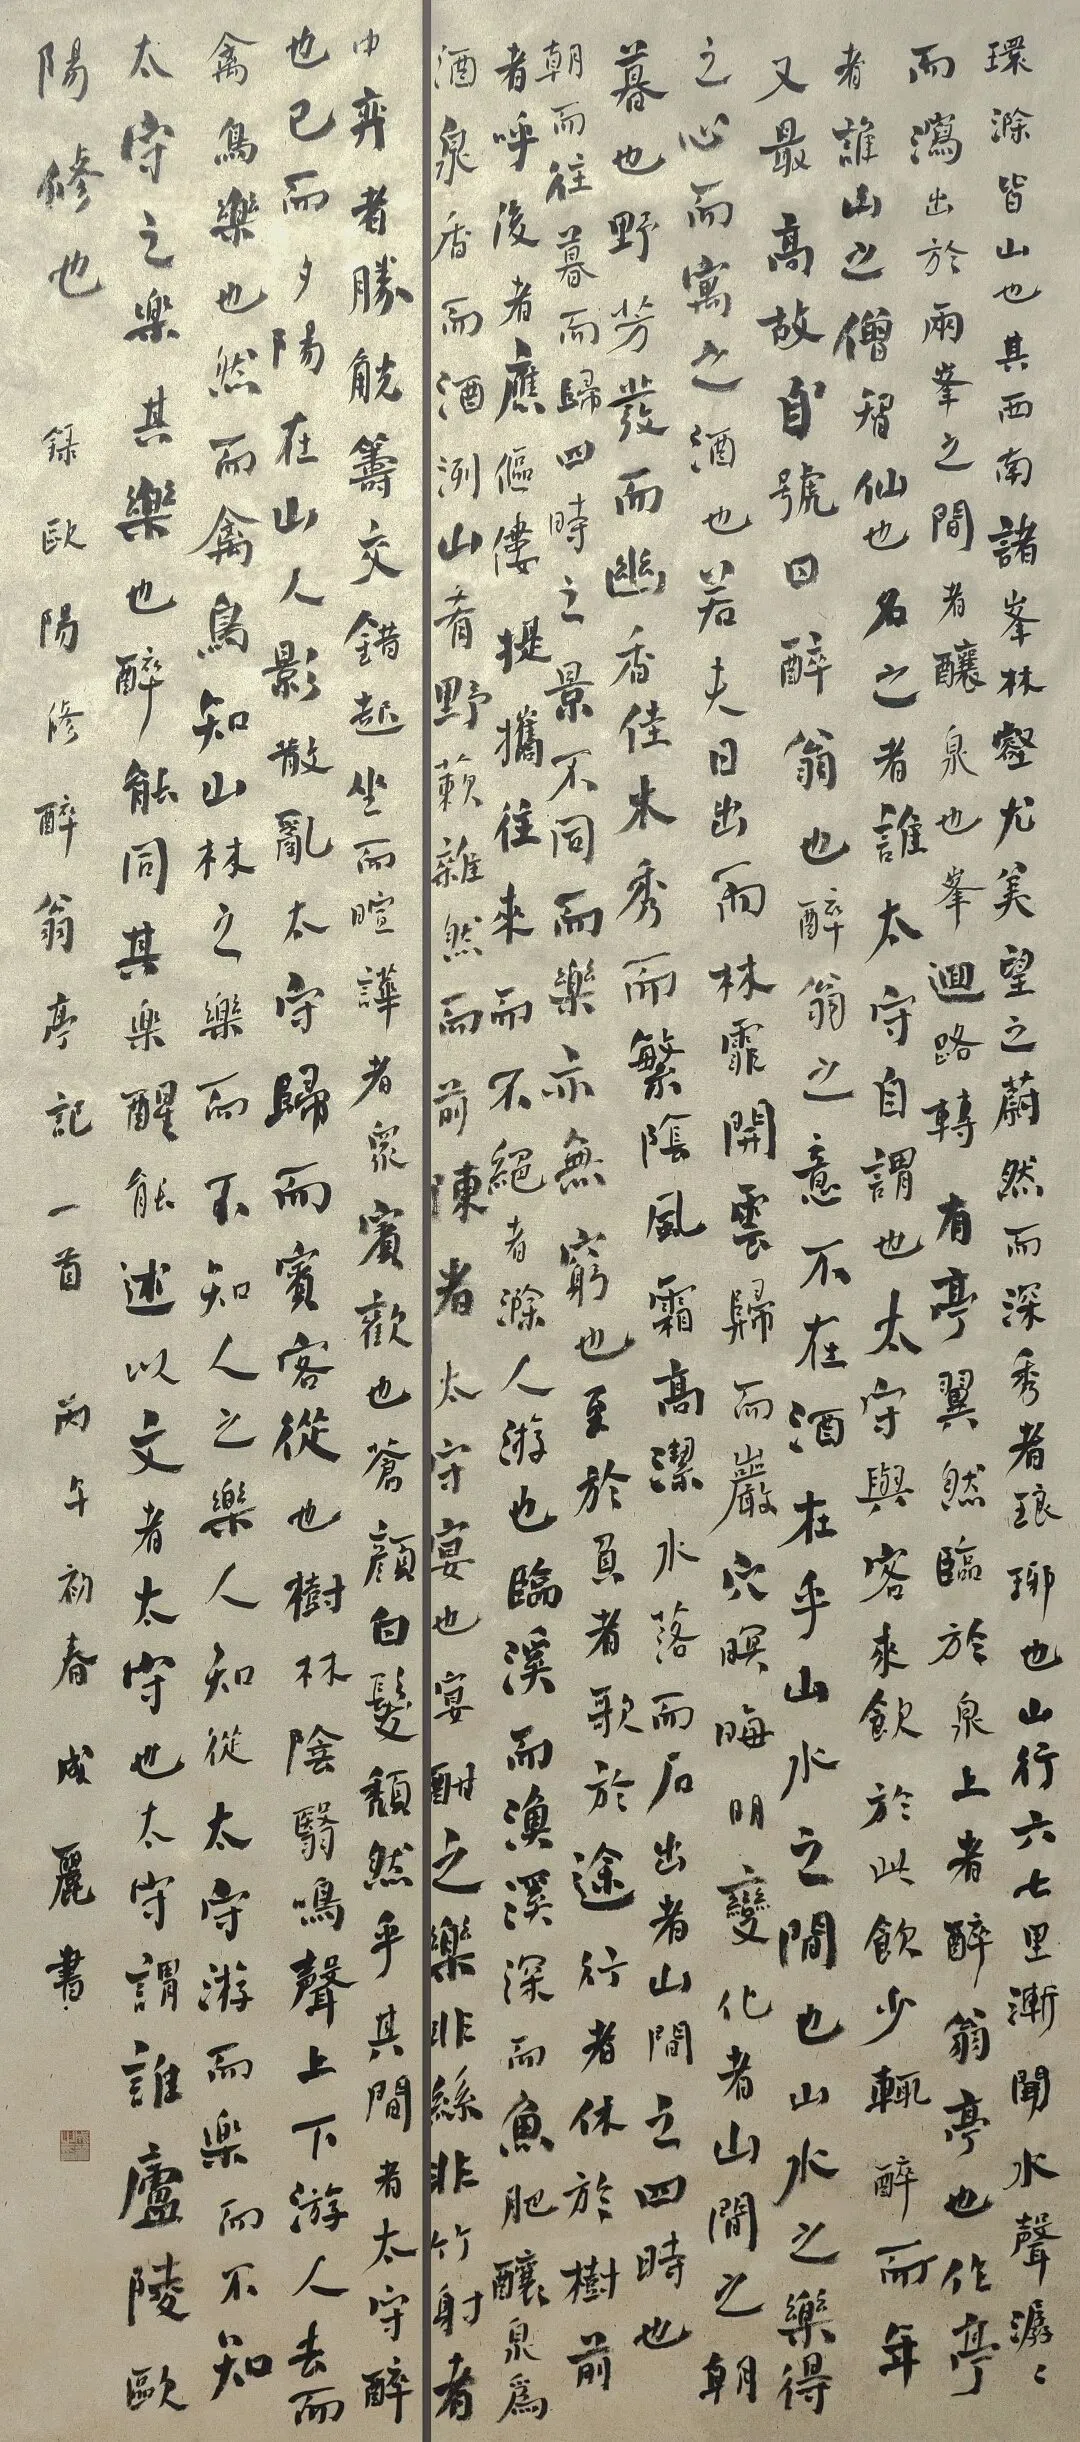 環滁皆山也其西南諸峯林壑尤美望之蔚然而深秀者琅琊也山行六七里漸聞水聲潺〻
而瀉出於兩峯之間者釀泉也峯迴路轉有亭翼然臨於泉上者醉翁亭也作亭
者誰山之僧智仙也名之者誰太守自謂也太守與客來飲於此飲少輒醉而年
又最高故自號曰醉翁也醉翁之意不在酒在乎山水之間也山水之樂得
之心而寓之酒也若夫日出而林霏開雲歸而巖穴暝晦明變化者山間之朝
暮也野芳發而幽香佳木秀而繁陰風霜高潔水落而石出者山間之四時也
朝而往暮而歸四時之景不同而樂亦無窮也至於負者歌於途行者休於樹前
者呼後者應傴僂提攜往來而不絕者滁人游也臨溪而漁溪深而魚肥釀泉爲
酒泉香而酒洌山肴野蔌雜然而前陳者太守宴也宴酣之樂非絲非竹射者
中弈者勝觥籌交錯起坐而喧譁者眾賓歡也蒼顏白髮頹然乎其間者太守醉
也已而夕陽在山人影散亂太守歸而賓客從也樹林陰翳鳴聲上下游人去而
禽鳥樂也然而禽鳥知山林之樂而不知人之樂人知從太守游而樂而不知
太守之樂其樂也醉能同其樂醒能述以文者太守也太守謂誰廬陵歐
陽修也 錄歐陽修醉翁亭記一首 丙午初春成麗書